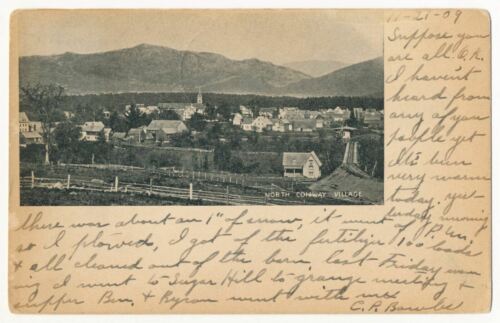 11-21-09
Suppose you
are all O.K.
I haven't
heard from
any of you
people yet
It's ben
very warm
today. yest-
NORTH CONWAY VILLAGE
erday morning
there was about an 1" of snow, it went of P.M.
so I plowed, I got of the fertilizer 100 loads
& all cleaned out of the barn last Friday even
ing I went to Sugar Hill to grange meeting &
supper Ben. & Byron went with me
C. P.